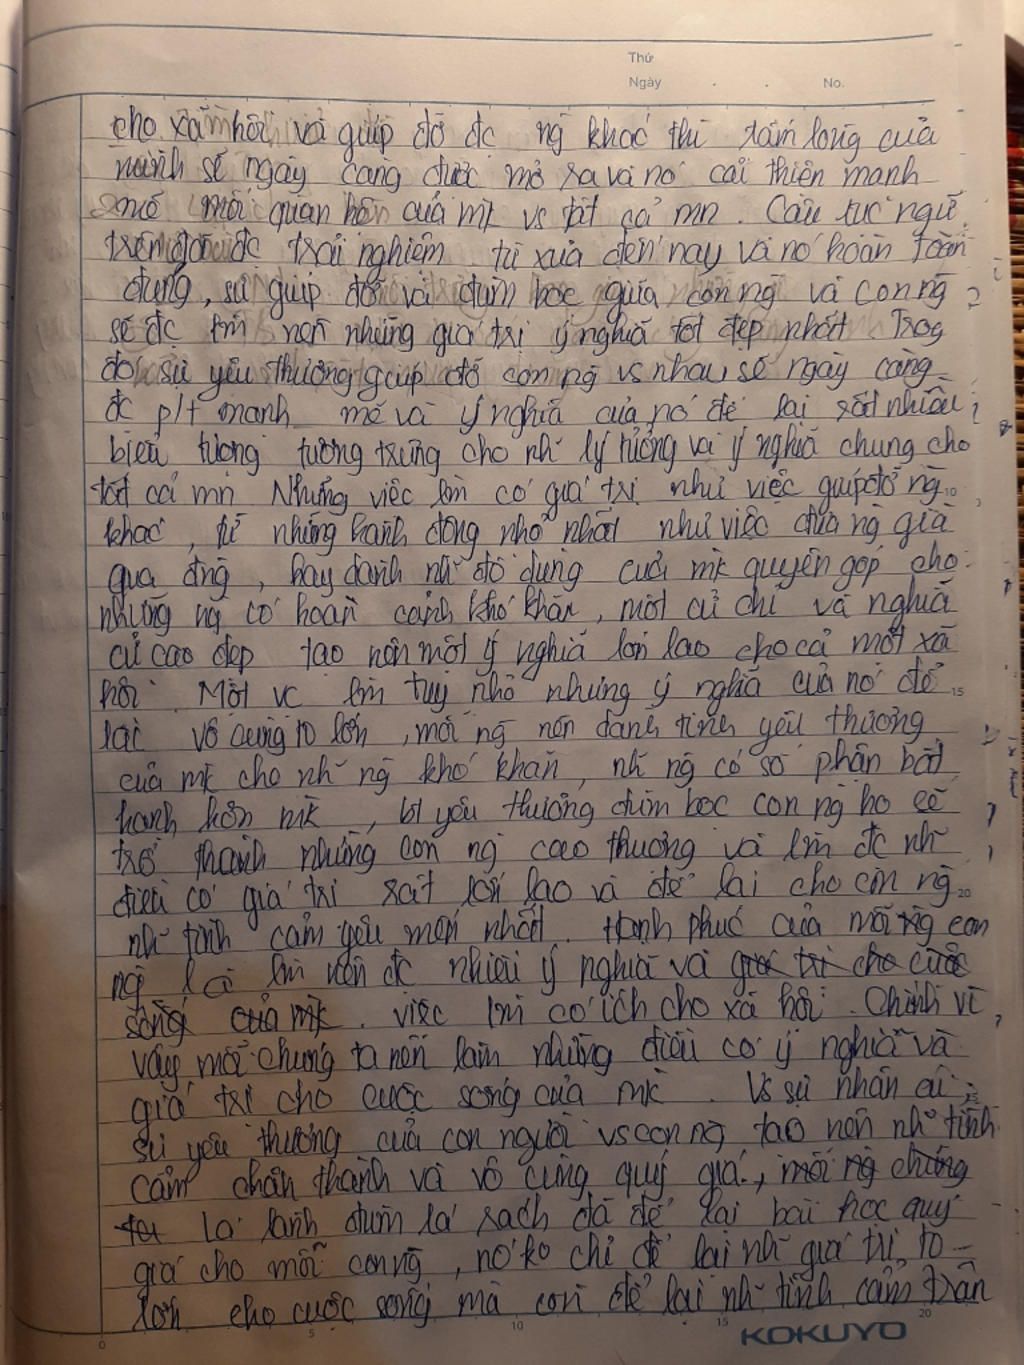 Thứ
Ngày . . No.
cho xã hội và giúp đỡ đc ng khác thì tấm lòng của
mình sẽ ngày càng được mở ra và nó cải thiện mạnh
mẽ mối quan hệ của mk vs tất cả mn. Câu tục ngữ
trên đã đc trải nghiệm từ xưa đến nay và nó hoàn toàn
đúng, sự giúp đỡ và đùm bọc giữa con ng và con ng
sẽ đc lm nên những giá trị ý nghĩa tốt đẹp nhất. Trog
đó sự yêu thương giúp đỡ con ng vs nhau sẽ ngày càng
đc p/t mạnh mẽ và ý nghĩa của nó để lại rất nhiều
biểu tượng tượng trưng cho nh~ lý tưởng và ý nghĩa chung cho
tất cả mn. Những việc lm có giá trị như việc giúp đỡ ng
khác, từ những hành động nhỏ nhất như việc đưa ng già
qua đng, hay dành nh~ đồ dùng cuả mk quyên góp cho
những ng có hoàn cảnh khó khăn, một cử chỉ và nghĩa
cử cao đẹp tạo nên một ý nghĩa lớn lao cho cả một xã
hội. Một vc lm tuy nhỏ nhưng ý nghĩa của nó để
lại vô cùng to lớn, mỗi ng nên dành tình yêu thương
của mk cho nh~ ng khó khăn, nh~ ng có số phận bất
hạnh hơn mk, bt yêu thương đùm bọc con ng họ sẽ
trở thành những con ng cao thượng và lm đc nh~
điều có giá trị rất lớn lao và để lại cho con ng
nh~ tình cảm yêu mến nhất. Hạnh phúc của mỗi ng con
ng là lm nên đc nhiều ý nghĩa và giá trị cho cuộc
sống của mk. việc lm có ích cho xã hội. Chính vì
vậy mỗi chúng ta nên làm những điều có ý nghĩa và
giá trị cho cuộc sống của mk. Vs sự nhân ái,
sự yêu thương của con người vs con ng tạo nên nh~ tình
cảm chân thành và vô cùng quý giá, mỗi ng chúng
ta lá lành đùm lá rách đã để lại bài học quý
giá cho mỗi con ng, nó ko chỉ để lại nh~ giá trị to
lớn cho cuộc sống mà còn để lại nh~ tình cảm trân
0 5 10 15 20
KOKUYO